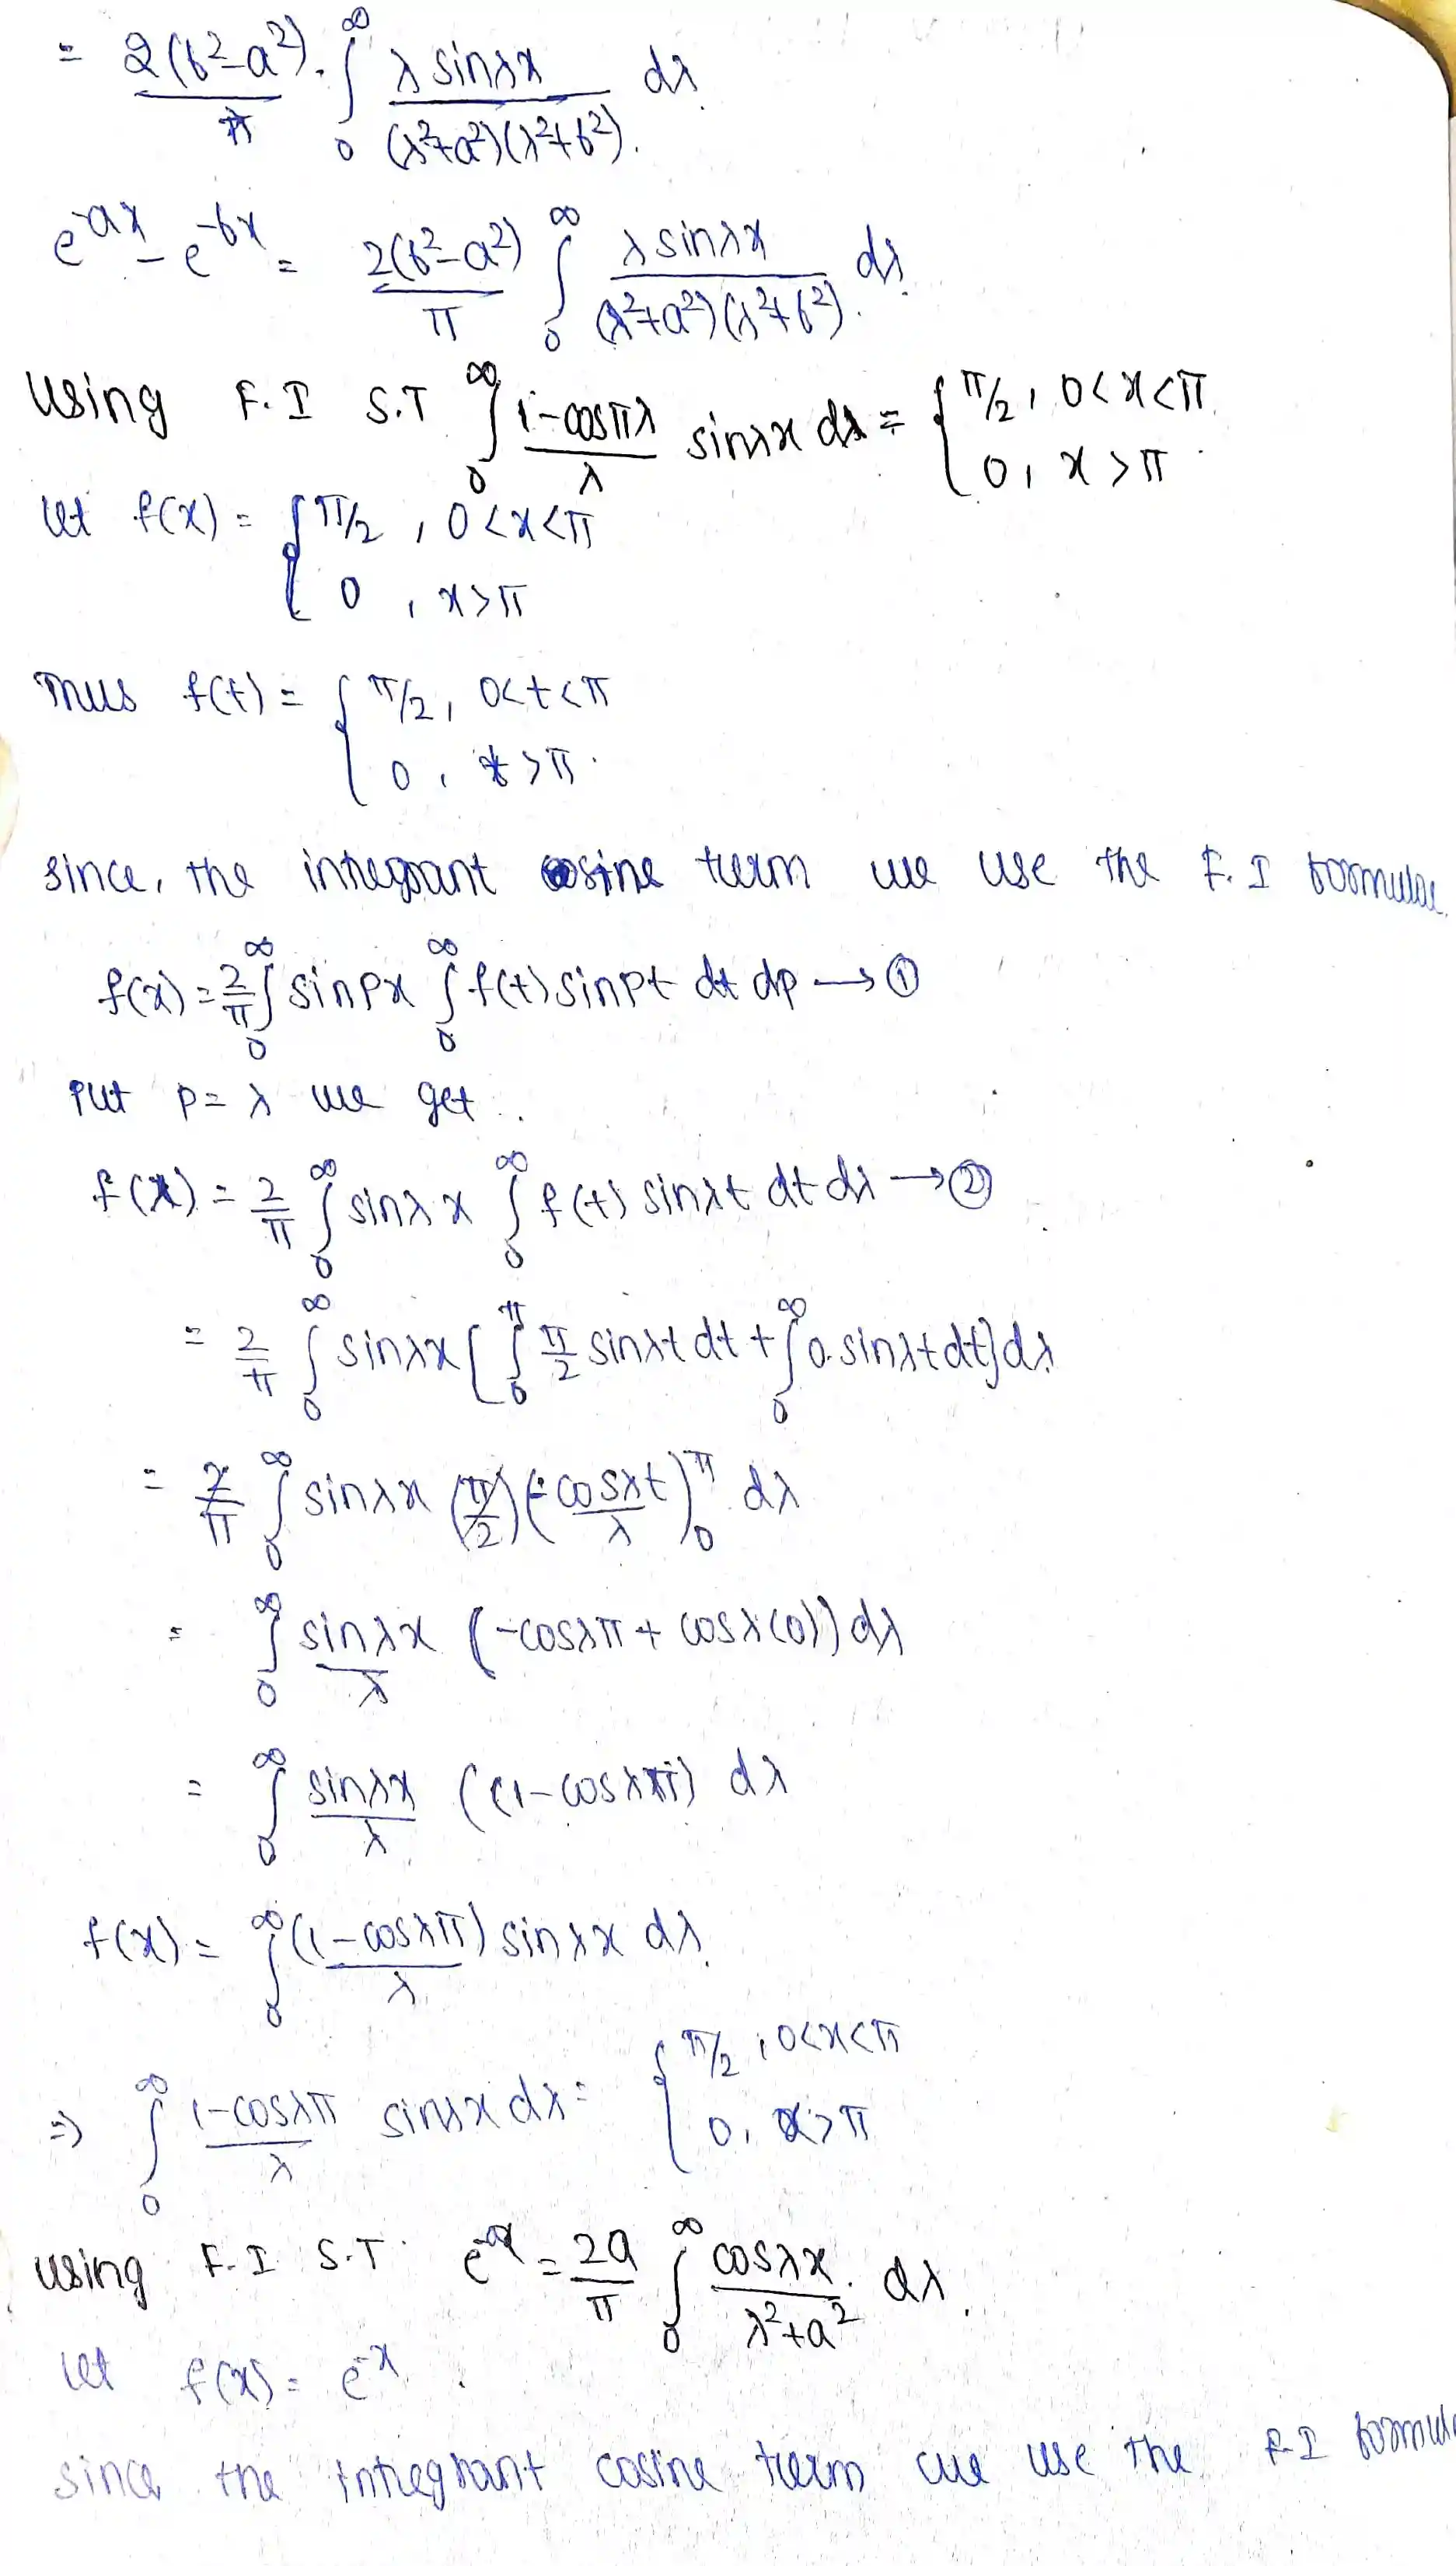 = 2(b²-a²)/π . ∫₀^∞ λ sinλx / (λ²+a²)(λ²+b²). dλ
e^-ax - e^-bx = 2(b²-a²)/π ∫₀^∞ λ sinλx / (λ²+a²)(λ²+b²). dλ
using F.I S.T ∫₀^∞ 1-cosπλ/λ sinλx dλ = { π/2, 0<x<π
0, x>π
let f(x) = { π/2, 0<x<π
0, x>π
Thus f(t) = { π/2, 0<t<π
0, t>π.
since, the integrant sine term we use the F.I formulae
f(x) = 2/π ∫₀^∞ sinpx ∫₀^∞ f(t) sinpt dt dp → ①
put p=λ we get.
f(x) = 2/π ∫₀^∞ sinλx ∫₀^∞ f(t) sinλt dt dλ → ②
= 2/π ∫₀^∞ sinλx [∫₀^π π/2 sinλt dt + ∫₀^∞ 0.sinλt dt] dλ
= 2/π ∫₀^∞ sinλx (π/2) (-cosλt/λ)₀^π dλ
= ∫₀^∞ sinλx/λ (-cosλπ + cosλ(0)) dλ
= ∫₀^∞ sinλx/λ ((1-cosλπ) dλ
f(x) = ∫₀^∞ (1-cosλπ)/λ sinλx dλ
⇒ ∫₀^∞ 1-cosλπ/λ sinλx dλ = { π/2, 0<x<π
0, x>π
using F.I S.T e^-ax = 2a/π ∫₀^∞ cosλx/λ²+a² dλ.
let f(x) = e^-x.
since the integrant cosine term we use the F.I formula